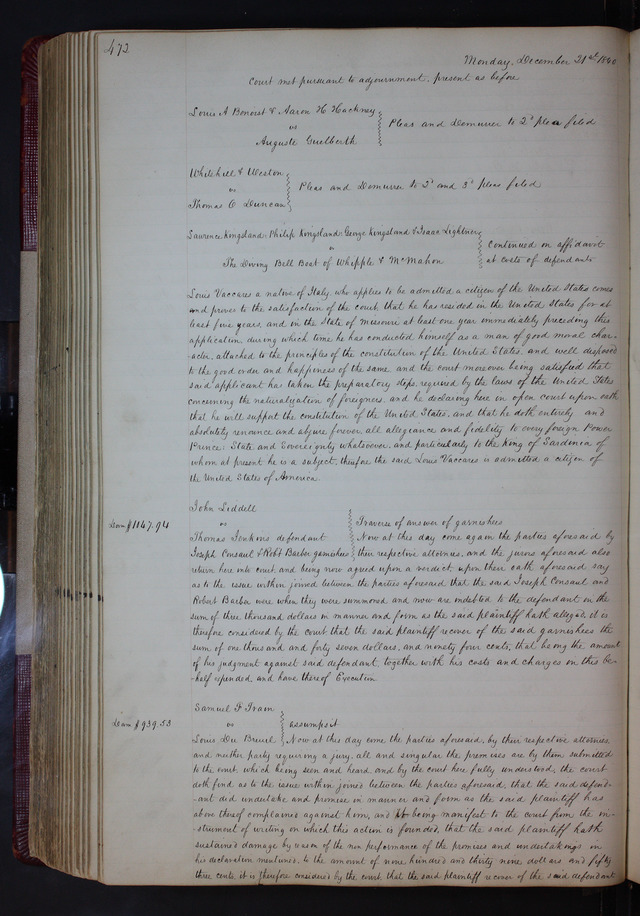 472
Monday, December 21st 1840
Court met pursuant to adjournment, present as before
Louis A Benoist & Aaron H Hackney
vs
Auguste Guelberth
Pleas and Demurrer to 2d plea filed
Whitehill & Weston
vs
Thomas C Duncan
Pleas and Demurrer to 2d and 3d pleas filed
Lawrence Kingsland, Philip Kingsland, George Kingsland & Isaac Lightner
vs
The Diving Bell Boat of Whipple & McMahon
Continued on affidavit
at costs of defendants
Louis Vaccares a native of Italy who applies to be admitted a citizen of the United States comes
and proves to the satisfaction of the court that he has resided in the United States for at
least five years, and in the State of Missouri at least one year immediately preceding this
application, during which time he has conducted himself as a man of good moral char-
acter, attached to the principles of the constitution of the United States, and well disposed
to the good order and happiness of the same and the court moreover being satisfied that
said applicant has taken the preparatory steps required by the laws of the United States
concerning the naturalization of foreigners, and he declaring here in open court upon oath
that he will support the constitution of the United States, and that he doth entirely and
absolutely renounce and abjure forever all allegiance and fidelity to every foreign Power
Prince, State and Sovereignty whatsoever and particularly to the King of Sardinia of
whom at present he is a subject, therefore the said Louis Vaccares is admitted a citizen of
the United States of America
John Liddell
vs
Dam $1147.94
Thomas Jenkins defendant
Joseph Consaul & Robt Barber garnishees
Traverse of answer of garnishees
Now at this day come again the parties aforesaid by
their respective attornies, and the jurors aforesaid also
return here into court and being now agreed upon a verdict upon there oath aforesaid say
as to the issue within joined between the parties aforesaid that the said Joseph Consaul and
Robert Barber were when they were summoned and now are indebted to the defendant in the
sum of three thousand dollars in manner and form as the said plaintiff hath alleged, it is
therefore considered by the court that the said plaintiff recover of the said garnishees the
sum of one thousand and forty seven dollars, and ninety four cents, that being the amount
of his judgment against said defendant together with his costs and charges on this be-
half expended, and have thereof Execution
Samuel F
vs
Dam $939.53
Louis Du Breuil
assumpsit
Now at this day come the parties aforesaid, by their respective attornies,
and neither party requiring a jury, all and singular the premises are by them submitted
to the court, which being seen and heard, and by the court here fully understood, the court
doth find, as to the issue within joined between the parties aforesaid, that the said defend-
ant did undertake and promise in manner and form as the said plaintiff has
above thereof complained against him, and it being manifest to the court from the in-
strument of writing on which this action is founded, that the said plaintiff hath
sustained damage by reason of the non performance of the promises and undertakings in
his declaration mentioned, to the amount of nine hundred and thirty nine dollars and fifty
three cents, it is therefore considered by the court, that the said plaintiff recover of the said defendant